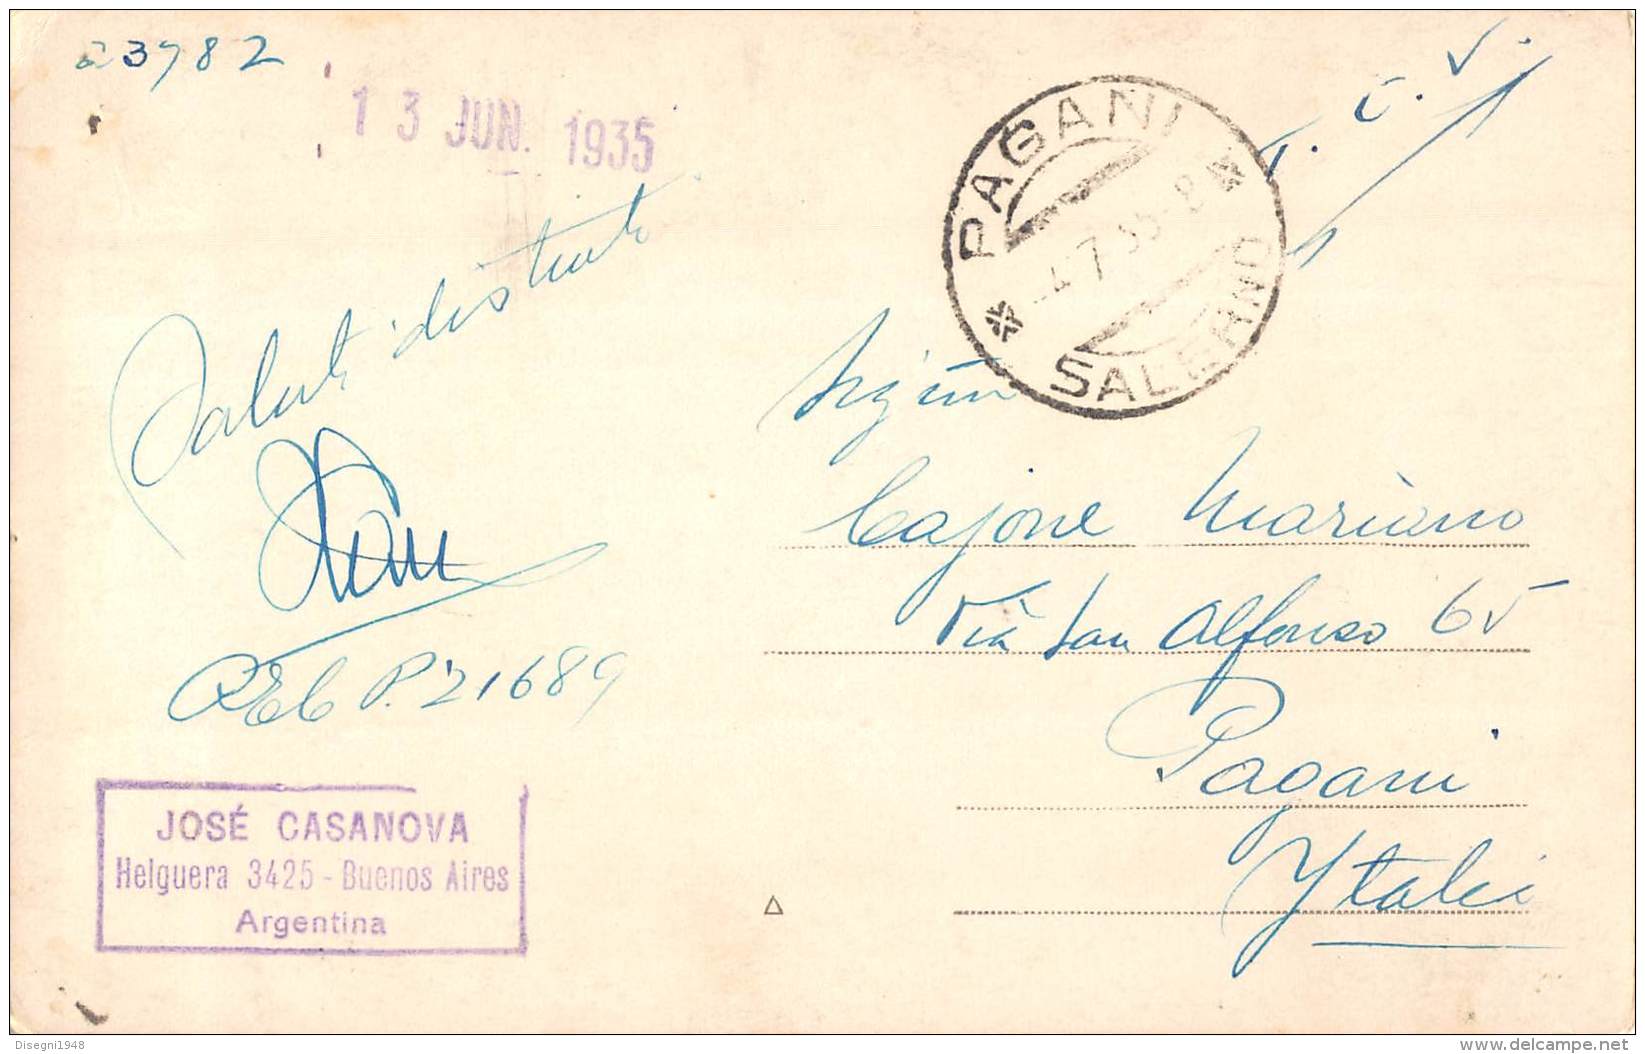 3782
13 JUN. 1935
T. C. V.
PAGANI
-4.7.35-8
SALERNO
Saluti distinti
P. 21689
JOSÉ CASANOVA
Helguera 3425 - Buenos Aires
Argentina
Cajone Mariano
Via San Alfonso 65
Pagani
Ytalia
Disegni1948
www.delcampe.net